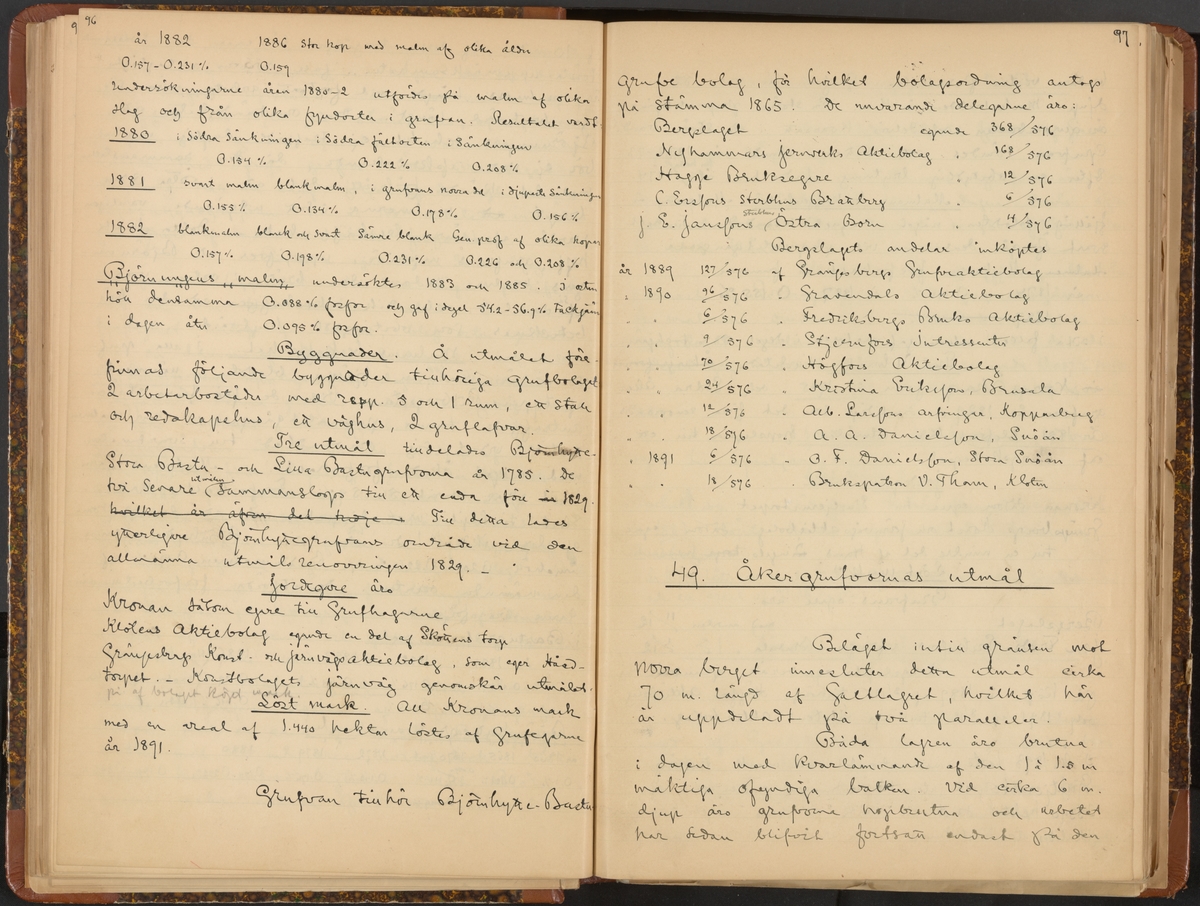 96
år 1882 1886 Stor hop med malm af olika ålder
0.157-0.231% 0.159
Undersökningarne åren 1880-2 utfördes på malm af olika
slag och från olika fyndorter i grufvan. Resultatet vardt
1880 i Södra Sänkningen i Södra fältorten i Sänkningen
0.134% 0.222% 0.208%
1881 svart malm blankmalm, i grufvans norra del i djupaste Sänkningen
0.155% 0.134% 0.178% 0.156%
1882 blankmalm blank och svart Sämre blank Gen. prof af olika hopar
0.157% 0.198% 0.231% 0.226 och 0.208%
malm undersöktes 1883 och 1885. I
höll densamma 0.088% fosfor och gaf i degel 54.2-56.9% Tackjärn
i dagen åter 0.095% fosfor.
Byggnader. Å utmålet före-
finnas följande byggnader tillhöriga grufbolaget
2 arbetarbostäder med resp. 5 och 1 rum, ett stall
och redskapshus, ett våghus, 2 gruflafvar.
Tre utmål tilldelades Björnhytte-
Stora Bastu- och Lilla Bastugrufvorna år 1785. De
två senare utmålen sammanslogos till ett enda före 1829.
hvilket är äfven det tredje Till detta lades
ytterligare Björnhyttegrufvans område vid den
allmänna utmålsrenovringen 1829. -
Jordegare äro
Kronan såsom egare till Grufhagarne
Klotens Aktiebolag egande en del af Skötens torp
Grängesbergs Konst- och järnvägsaktiebolag, som eger
torpet. - Konstbolagets järnväg genomskär utmålet.
på af bolaget köpd mark
Löst mark. All Kronans mark
med en areal af 1.440 hektar löstes af Grufegarne
år 1891.
Grufvan tillhör Björnhytte-Bastu
97
grufve bolag, för hvilket bolagsordning antogs
på stämma 1865. De nuvarande delegarne äro:
Bergslaget egande 368/576
Nyhammars jernverks Aktiebolag . 168/576
Hagge Bruksegare 12/576
C. Ersfons Sterbhus Braxberg . 6/576
J. E. Jansfons Sterbhus Östra Born . 4/576
Bergslagets andelar inköptes
år 1889 127/576 af Grängesbergs Grufveaktiebolag
" 1890 96/576 " Gravendals Aktiebolag
" " 6/576 " Fredriksbergs Bruks Aktiebolag
" " 9/576 " Stjernfors Intressenter
" " 70/576 " Högfors Aktiebolag
" " 24/576 " Kristina Eriksfon, Brusala
" " 12/576 " Alb. Larsfons arfvingar, Kopparberg
" " 18/576 " A. A. Danielsfon, Snöån
" 1891 6/576 " O. F. Danielsfon, Stora Snöån
" " 18/576 " Brukspatron V. Tham, Kloten
49. Åkergrufvornas utmål
Beläget intill gränsen mot
norra berget innesluter detta utmål cirka
70 m. längd af Galtlagret, hvilket här
är uppdeladt på två paralleler.
Båda lagren äro brutna
i dagen med kvarlämnande af den 1 à 1.5 m
mäktiga ofyndiga balken. Vid cirka 6 m.
djup äro grufvorna hopbrutna och arbetet
har sedan blifvit fortsatt endast på den